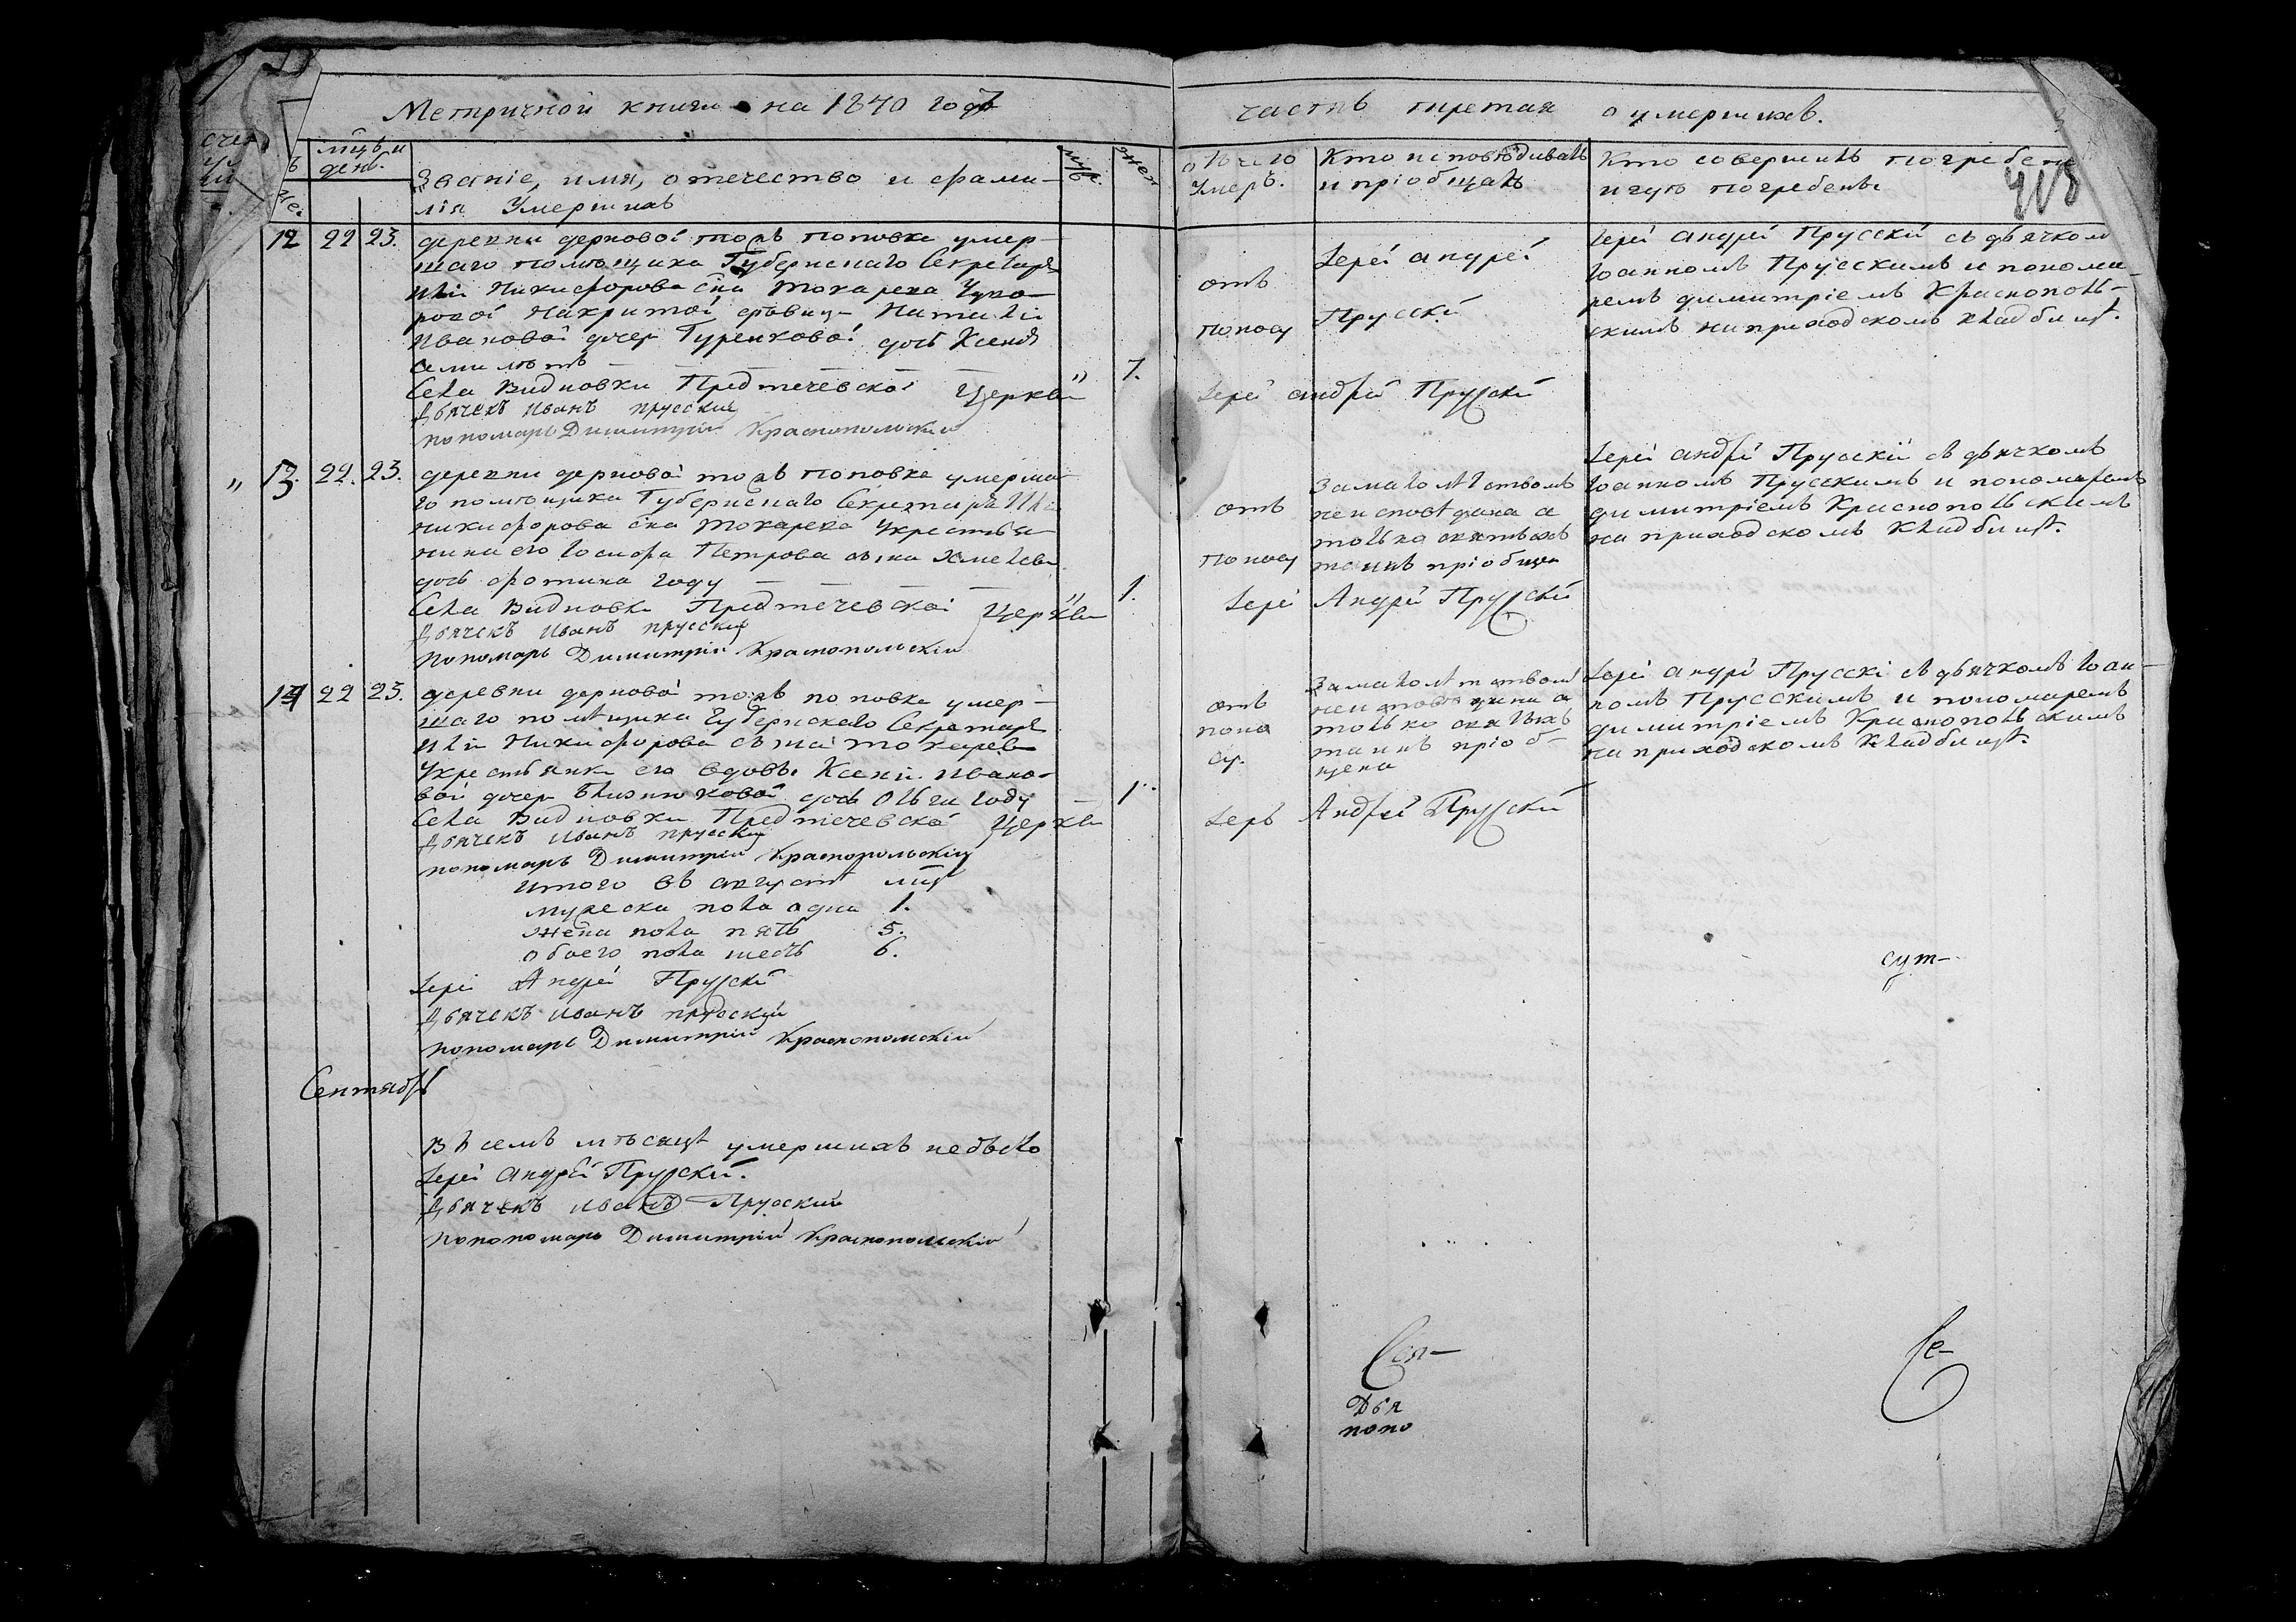 Метричной книги на 1840 годъ
часть третая о умершихъ.
мцъ и день.
Званіе, имя, отечество и фами-
лія Умершихъ
муж.
жен
отъ чего Умеръ.
Кто исповѣдивалъ
и пріобщалъ
Кто совершилъ погребеніе
и гдѣ погребены
408
12 22 23. деревни дерновой тожъ поповке умер-
шаго помѣщика Губернскаго Секретаря
Иліи Никифорова сна Токарева
Наталіи
Ивановой дочер Гуренковой дочь Ксенія
семи лѣтъ 7.
Села Видновки Предтечевской Церкви
Дьячекъ Иванъ прусский
пономарь Димитрій Краснопольскій
отъ
поносу
Іерей андрей
Прусскій
Іерей андрей Прусскій
Іерей андрей Прусскій съ дьячком
Іоанномъ Прусскимъ и понома-
ремъ димитріемъ Краснополь-
скимъ на приходскомъ кладбищѣ.
" 13. 22. 23. деревни дерновой тожъ поповке умерша-
го помѣщика Губернскаго Секретаря Иліи
никифорова сна токарева Укрестья-
нина его Іосифа Петрова сына
дочь фотина году " 1.
Села Видновки Предтечевской Церкви
Дьячекъ Иванъ прусский
Пономарь Димитрій Краснопольскій
отъ
поносу
Замалолѣтствомъ
неисповѣдана а
только святыхъ
таинъ пріобщен
Іерей Андрей Прусскій
Іерей андрей Прусскій съ дьячкомъ
Іоанномъ Прусскимъ и пономаремъ
димитріемъ Краснопольскимъ
на приходскомъ кладбищѣ.
14 22 23. деревни дерновой тожъ поповке умер-
шаго помѣщика Губернскаго Секретаря
Иліи Никифорова сына токарева
Укрестьянки его вдовы Ксеніи Ивано-
вой дочер дочь Ольги году 1.
Села Видновки Предтечевской Церкви
Дьячекъ Иванъ прусский
пономарь Димитрій Краснопольскій
отъ
поно
су.
Замалолѣтством
неисповѣдана а
только святыхъ
таинъ пріоб-
щена
Іерей Андрей Прусскій
Іерей андрей Прусскі съ дьячкомъ Іоан-
номъ Прусскимъ и пономаремъ
димитріемъ Краснопольскимъ
на приходскомъ кладбищѣ.
итого въ августѣ мцѣ
мужеска пола одна 1.
жена пола пять 5.
обоего пола шесть 6.
Іерей Андрей Прусскій
Дьячекъ Иванъ прусский
пономарь Димитрій Краснопольскій
сут-
Сентябрь
Въ семъ мѣсяцѣ умершихъ небыло
Іерей Андрей Прусскій.
Дьячекъ Иванъ Прусский
Попономарь Димитрій Краснопольскій
Свя-
Дья
поно
Се-